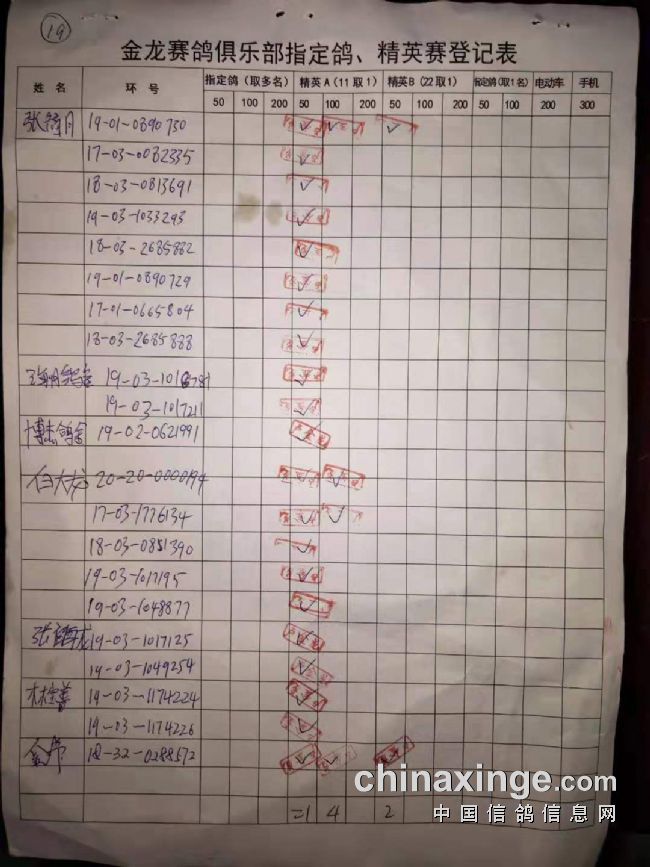 19
金龙赛鸽俱乐部指定鸽、精英赛登记表
姓 名 环 号 指定鸽（取多名） 精英A（11取1） 精英B（22取1） 指定鸽(取1名) 电动车 手机
50 100 200 50 100 200 50 100 200 50 100 200 300
19-01-0890730 ✓ ✓ ✓
17-03-0082335 ✓
18-03-0813691 ✓
19-03-1033293 ✓
18-03-2685882 ✓
19-01-0890729 ✓
17-01-0665804 ✓
18-03-2685888 ✓
✓
19-03-1017211 ✓
博杰鸽舍 19-02-0621991 ✓
白大龙 20-20-0000194 ✓ ✓
17-03-1776134 ✓ ✓
18-03-0851390 ✓
19-03-1017195 ✓
19-03-1048877 ✓
19-03-1017125 ✓
19-03-1049254 ✓
19-03-1174224 ✓
19-03-1174226 ✓
18-32-0288572 ✓ ✓ ✓
21 4 2
chinaxinge.com
中国信鸽信息网